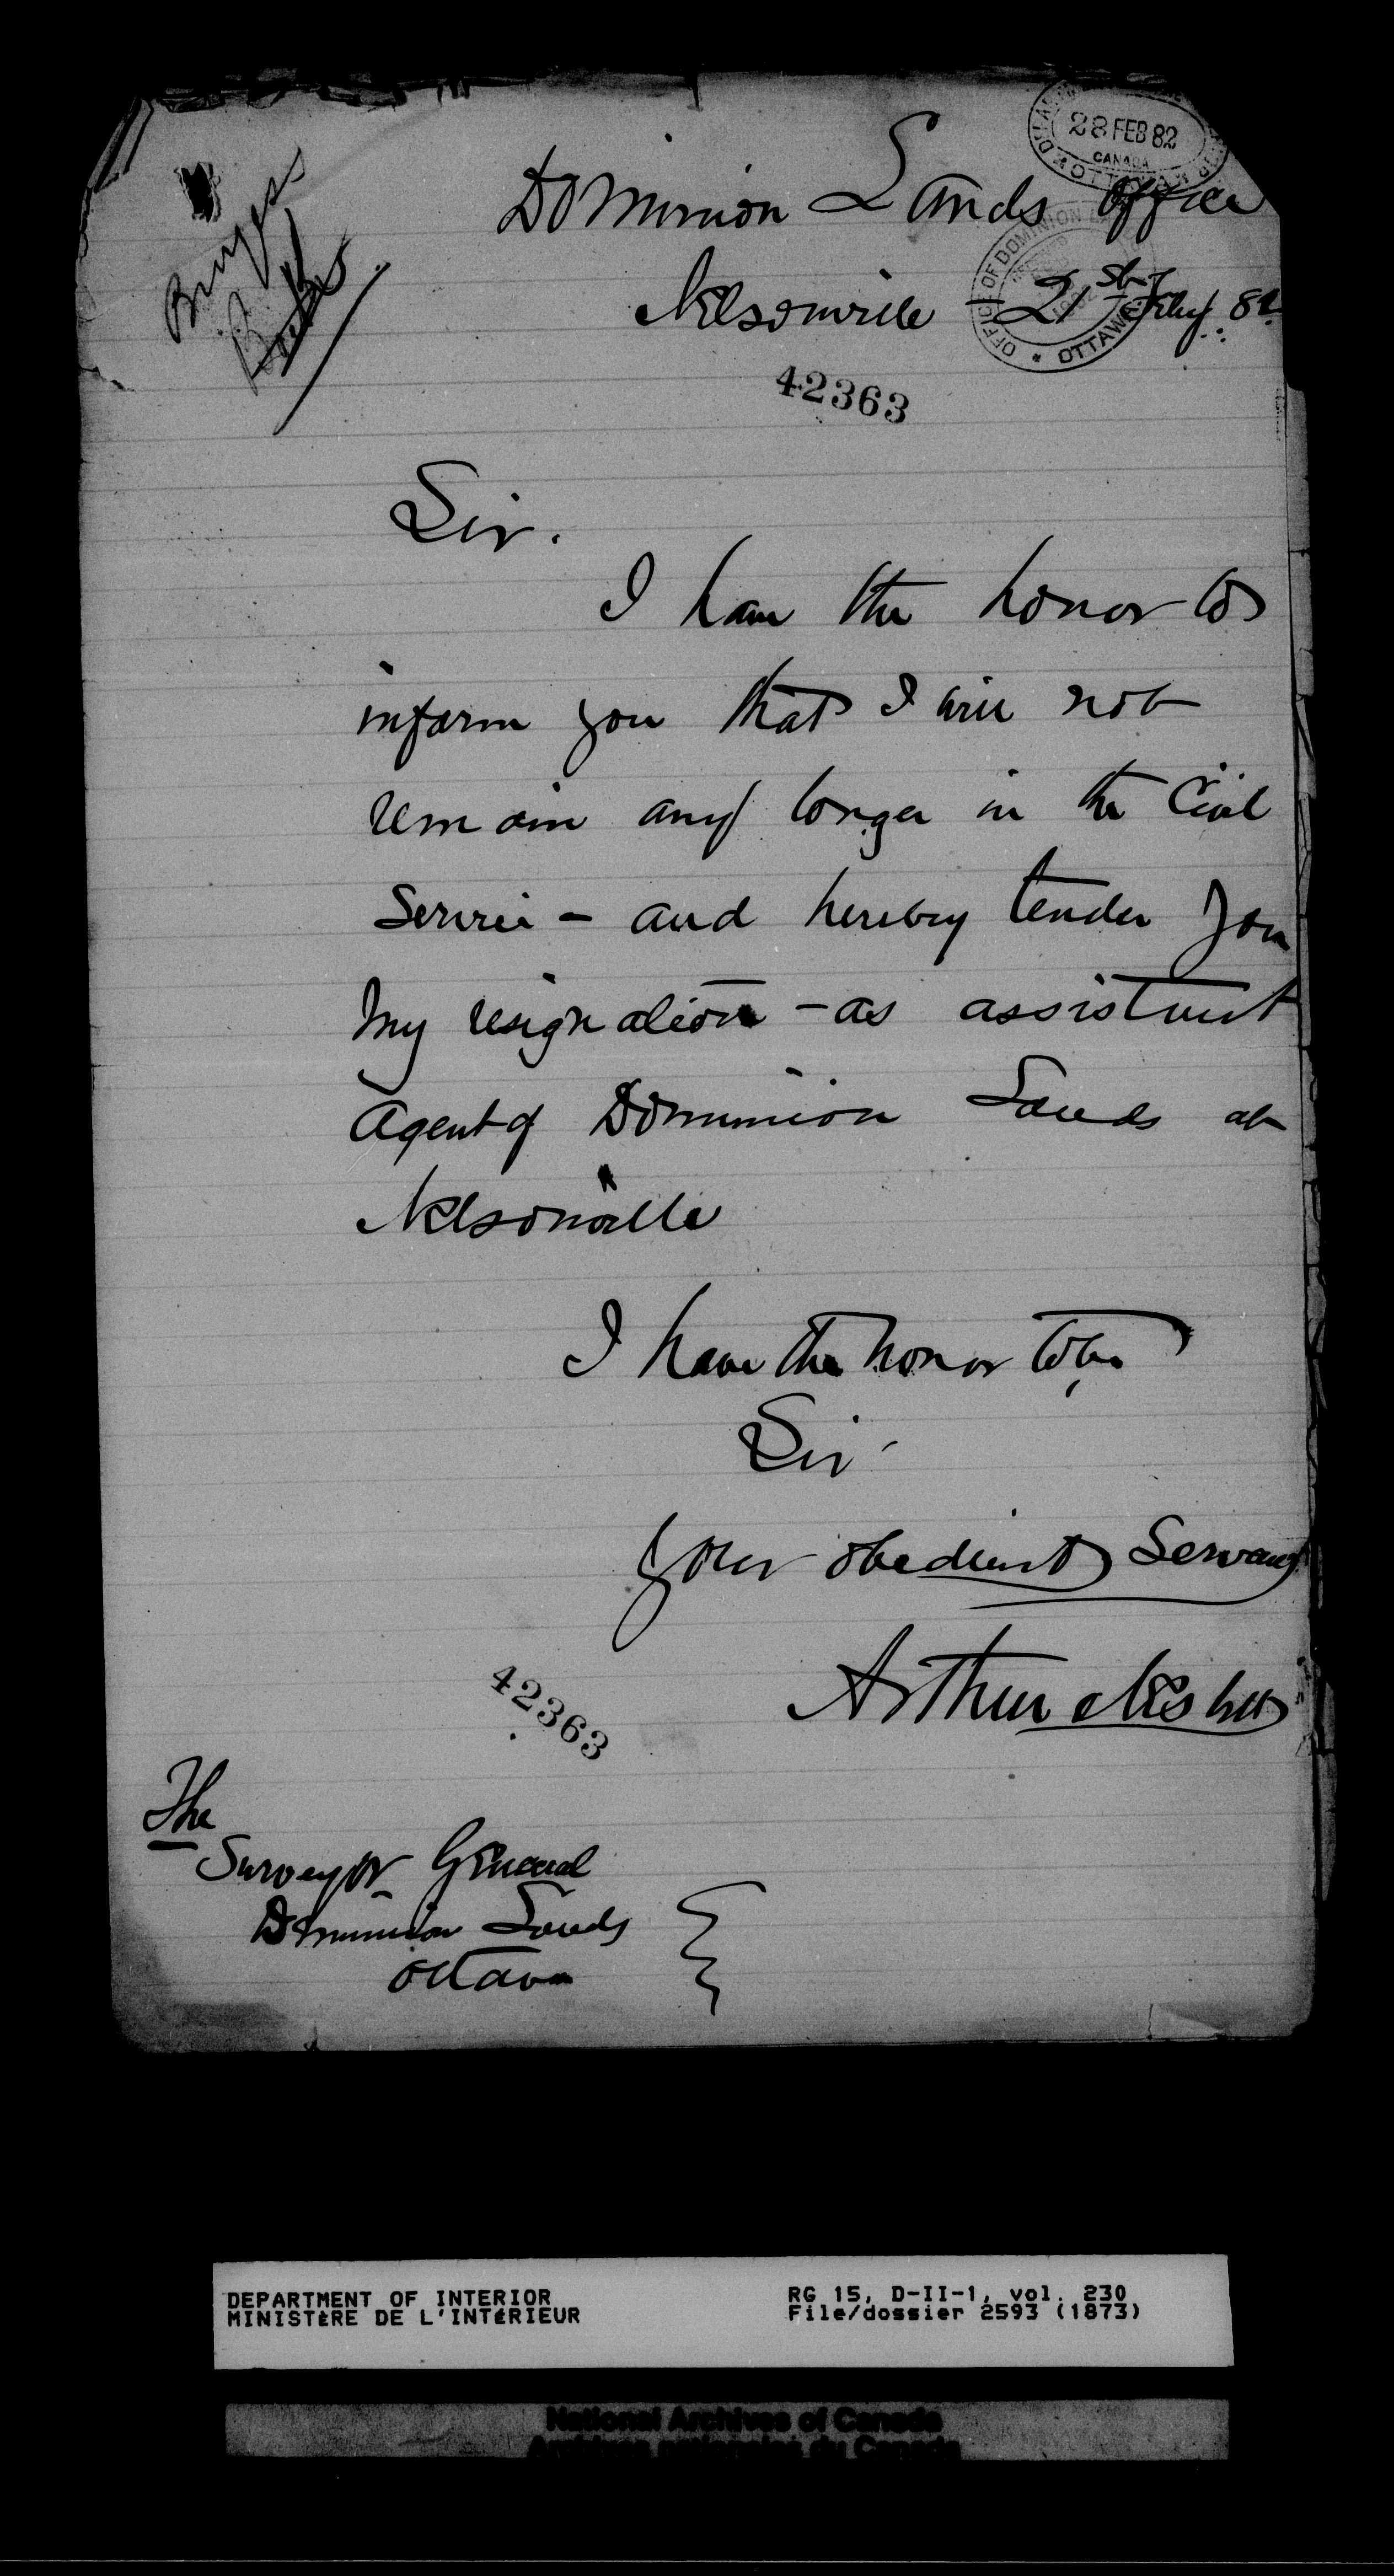 28 FEB 82
CANADA
Dominion Lands Office
OFFICE OF DOMINION LANDS
OTTAWA
Nelsonville 21st Feby. 82
Burgess
42363
Sir.
I have the honor to
inform you that I will not
remain any longer in the Civil
Service - and hereby tender you
my resignation - as assistant
Agent of Dominion Lands at
Nelsonville
I have the honor to be
Sir
your obedient Servant
Arthur Nesbitt
42363
The
Surveyor General
Dominion Lands
Ottawa
DEPARTMENT OF INTERIOR
MINISTÈRE DE L'INTÉRIEUR
RG 15, D-II-1, vol. 230
File/dossier 2593 (1873)
National Archives of Canada
Archives nationales du Canada